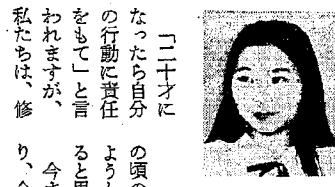 「二十才に
なったら自分
の行動に責任
をもて」と言
われますが、
私たちは、修
の頃の
ようし
ると思
今ま
り、会